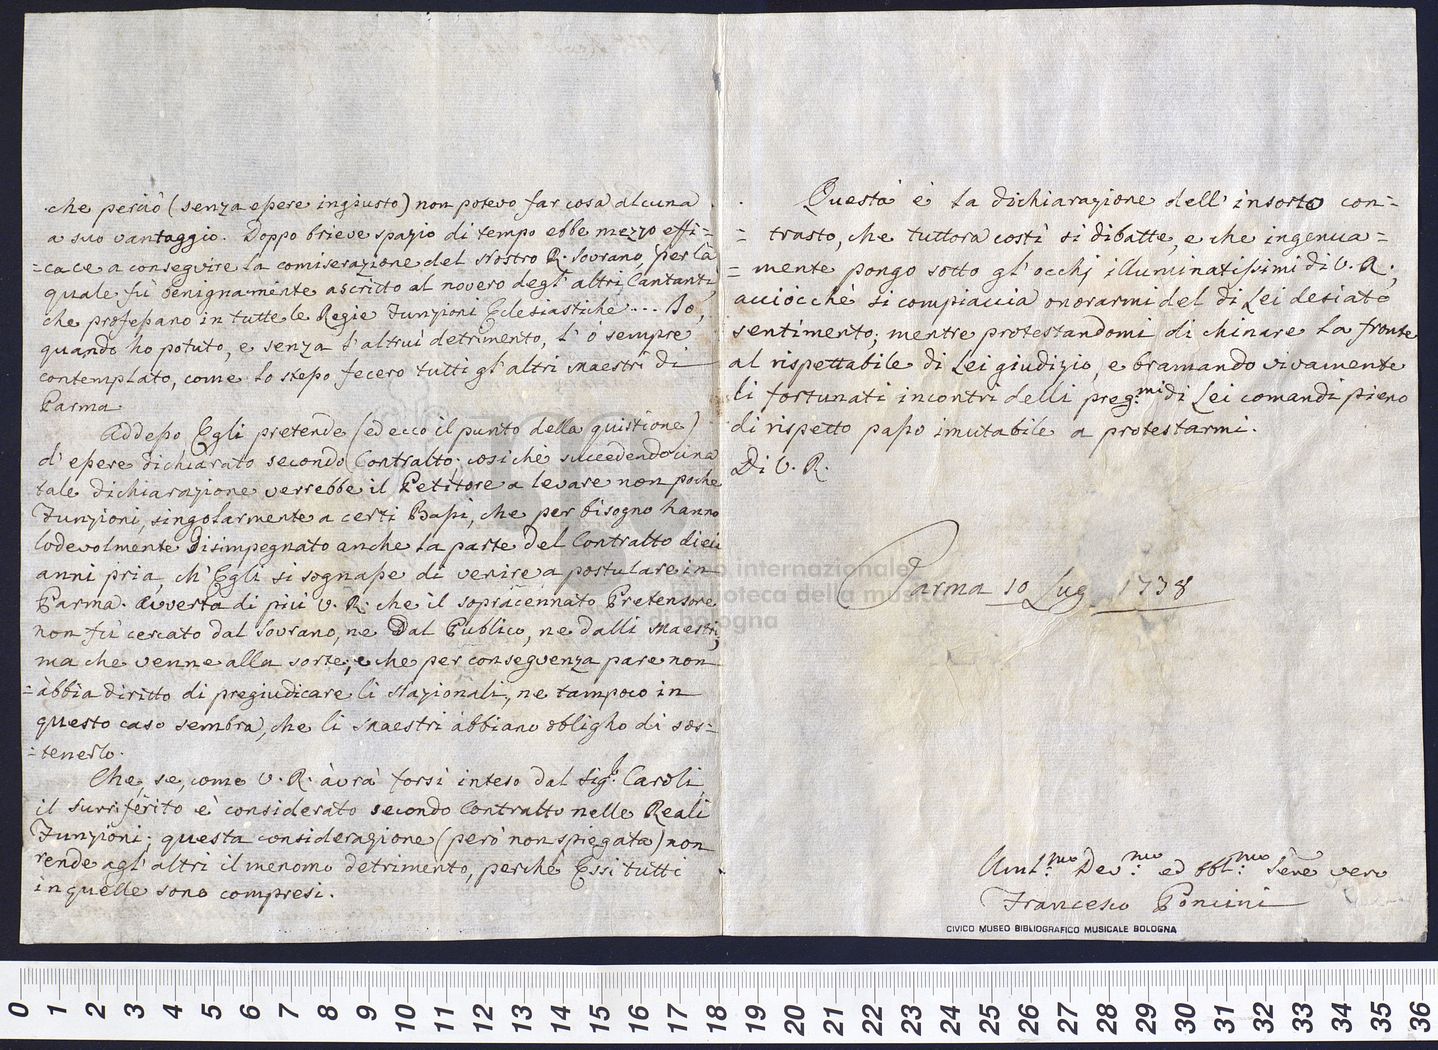 che perciò (senza eßere ingiusto) non potevo far cosa alcuna
a suo vantaggio. Doppo brieve spazio di tempo ebbe mezzo effi=
=cace a conseguire la comiserazione del Nostro R. Sovrano, per la
quale fù benignamente ascritto al novero degl' altri Cantanti
che profeßano in tutte le Regie Funzioni Eclesiastiche.... Io,
quando ho potuto, e senza l'altrui detrimento, l' ò sempre
contemplato, come lo steßo fecero tutti gl' altri Maestri di
Parma
Addeßo Egli pretende (ed ecco il punto della quistione)
d' eßere dichiarato secondo Contralto; cosichè succedendo una
tale dichiarazione verrebbe il Petitore a levare non poche
Funzioni, singolarmente a certi Baßi, che per bisogno hanno
lodevolmente disimpegnato anche la parte del Contralto dieci
anni pria, ch' Egli si sognaße di venire a postulare in
Parma. Avverta di più V. R. che il sopracennato Pretensore
non fù cercato dal Sovrano, ne dal Publico, ne dalli Maestri,
ma che venne alla sorte; e che per conseguenza pare non
=abbia diritto di pregiudicare li Nazionali, ne tampoco in
questo caso sembra, che li Maestri abbiano obligho di sos=
=tenerlo.
Che, se, come V. R. avrà forsi inteso dal Sig.r Caroli,
il surriferito è considerato secondo Contralto nelle Reali
Funzioni; questa considerazione (però non spiegata) non
rende agl' altri il menomo detrimento, perchè Essi tutti
in quelle sono compresi.
Questa è la dichiarazione dell' insorto con=
=trasto, che tuttora costì si dibatte, e che ingenua=
=mente pongo sotto gl' occhj illuminatissimi di V. R.,
acciocchè si compiaccia onorarmi del di Lei desiato
sentimento; mentre protestandomi di chinare la fronte
al rispettabile di Lei giudizio, e bramando vivamente
li fortunati incontri delli preg.mi di Lei comandi pieno
di rispetto paßo imutabile a protestarmi.
Di V. R.
Parma 10 Lug. 1778
Uml.mo Dev.mo ed obl.mo Serv. vero
Francesco Poncini
CIVICO MUSEO BIBLIOGRAFICO MUSICALE BOLOGNA
museo internazionale
biblioteca della musica
di bologna
0 1 2 3 4 5 6 7 8 9 10 11 12 13 14 15 16 17 18 19 20 21 22 23 24 25 26 27 28 29 30 31 32 33 34 35 36